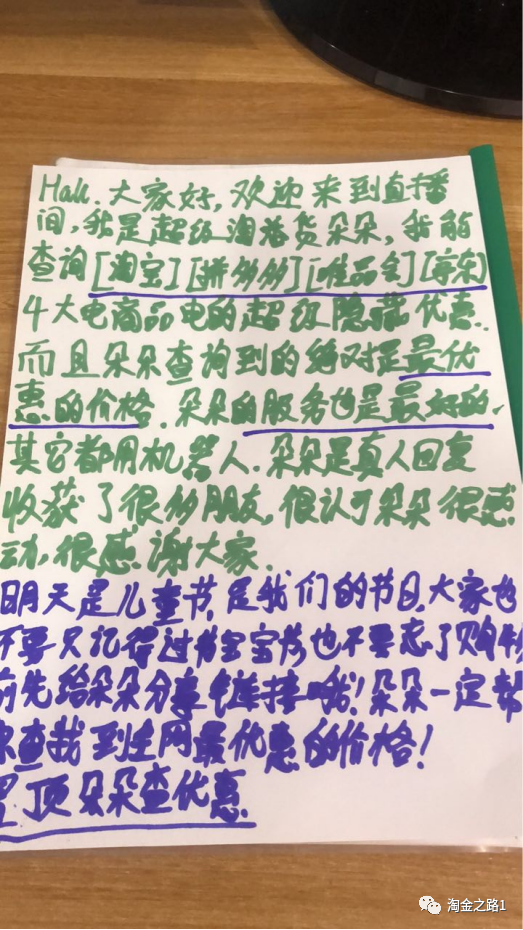 Hall.大家好,欢迎来到直播
间,我是超级淘宝货朵朵,我能
查询[淘宝][拼多多][唯品会][京东]
4大电商品电的超级隐藏优惠.
而且朵朵查询到的绝对是最优
惠的价格.朵朵的服务也是最好的、
其它都用机器人.朵朵是真人回复
收获了很多朋友,很认可朵朵很感
动,很感谢大家.
明天是儿童节,是我们的节日,大家也
不要只记得过书宝宝节也不要忘了购物
前先给朵朵分享链接哦!朵朵一定帮
你查找到全网最优惠的价格!
置顶朵朵查优惠.
淘金之路1